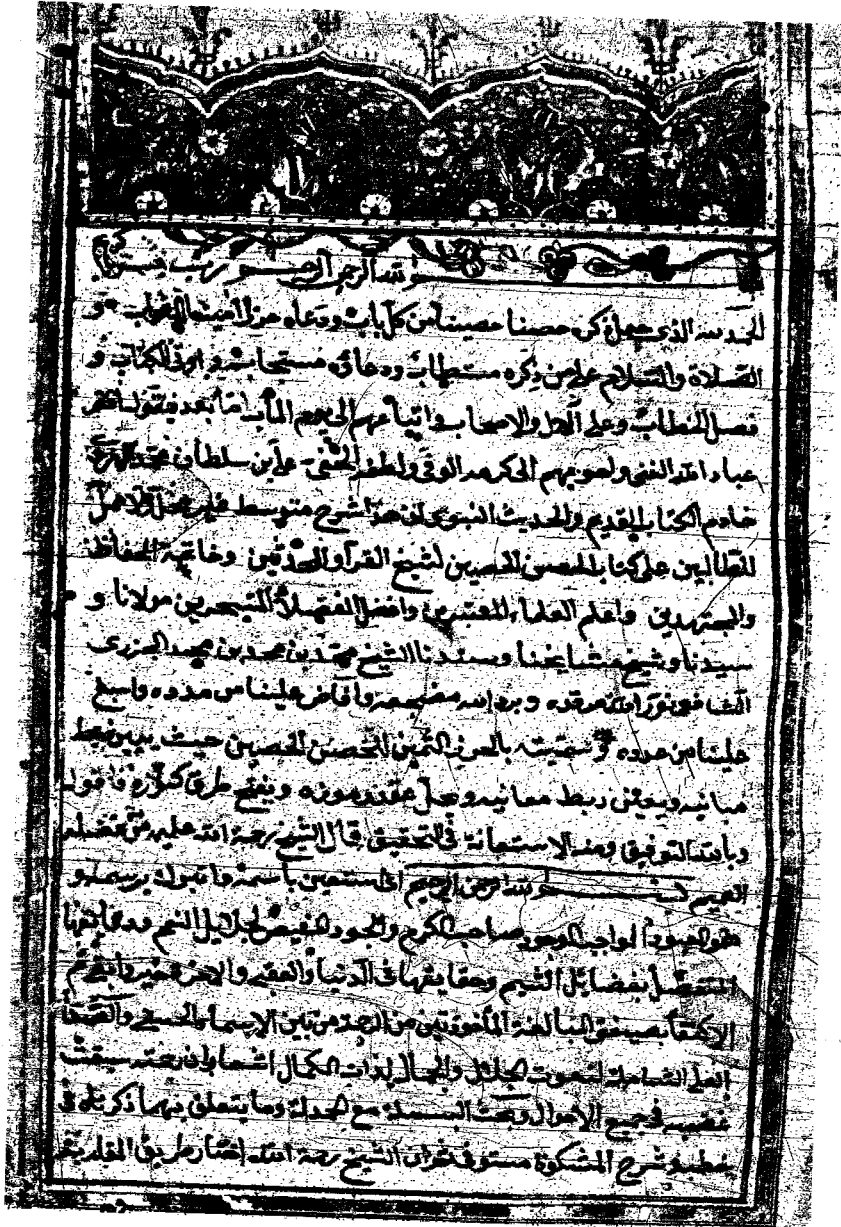 بسم الله الرحمن الرحيم رب
الحمد لله الذي جعل ذكره حصنا حصينا من كل باب ودعاه حرزا و
الصلاة والسلام على من ذكره مستطاب ودعاؤه مستجاب واوتي الكتاب و
فصل الخطاب وعلى الآل والاصحاب واتباعهم الى يوم المآب اما بعد فيقول افقر
عباد الله الغني واحوجهم الى كرمه الوفي ولطفه الخفي علي بن سلطان محمد الهروي
خادم الكتاب القديم والحديث النبوي ان هذا شرح متوسط غير مخل ولا ممل
للطالبين على كتاب الحصن الحصين لشيخ القرآء والمحدثين وخاتمة الحفاظ
والمجتهدين واعلم العلماء المعتبرين وافضل الفضلاء المتبحرين مولانا و
سيدنا وشيخ مشايخنا وسندنا الشيخ محمد بن محمد بن محمد الجزري
الشافعي نور الله مرقده وبرد الله مضجعه وافاض علينا من مدده واسبغ
علينا من عدده وسميته بالحرز الثمين للحصن الحصين حيث يبين ضبط
مبانيه ويعين ربط معانيه ويحل عقد رموزه ويفتح طرق كنوزه فاقول
وبالله التوفيق ومنه الاستعانة في التحقيق قال الشيخ رحمة الله عليه من فضله
العميم بسم الله الرحمن الرحيم اي استعين باسمه واتبرك برسمه و
هو المعبود الواجب الوجود صاحب الكرم والجود المفيض لجلائل النعم ودقائقها
المتفضل بفضائل الشيم وحقائقها في الدنيا والعقبى والاخرة خير وابقى ثم
الاكتفاء بصيغتي المبالغة المأخوذتين من الرحمة من بين الاسماء الحسنى والصفات
العلى الشاملة لنعوت الجلال والجمال لذات الكمال اشعار بان رحمته سبقت
غضبه في جميع الاحوال وبحث البسملة مع الحمدلة وما يتعلق بهما ذكرناه في
شرح المشكوة مستوفى ثم ان الشيخ رحمه الله اختار طريق